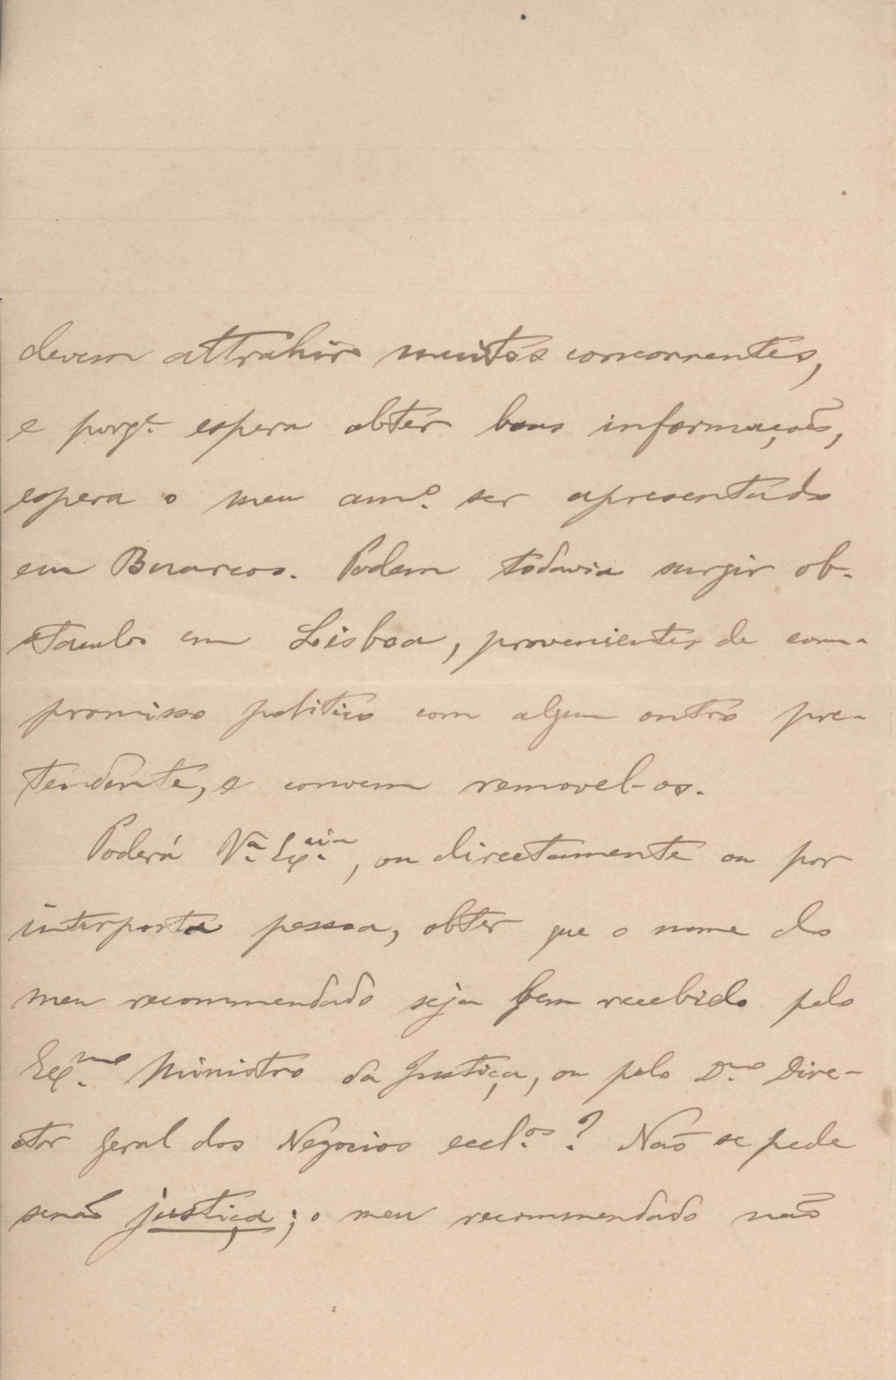 devem attrahir muitos concorrentes,
e porq.e espera obter boas informações,
espera o meu am.o ser apresentado
em Buarcos. Podem todavia surgir ob-
staculos em Lisboa, provenientes de com-
promisso politico com algum outro pre-
tendente, e convem removel-os.
Poderá V.a Ex.cia, ou directamente ou por
interposta pessoa, obter que o nome do
meu recommendado seja bem recebido pelo
Ex.mo Ministro da Justiça, ou pelo D.mo Dire-
ctor geral dos Negocios eccl.os? Não se pede
senão justiça; o meu recommendado não